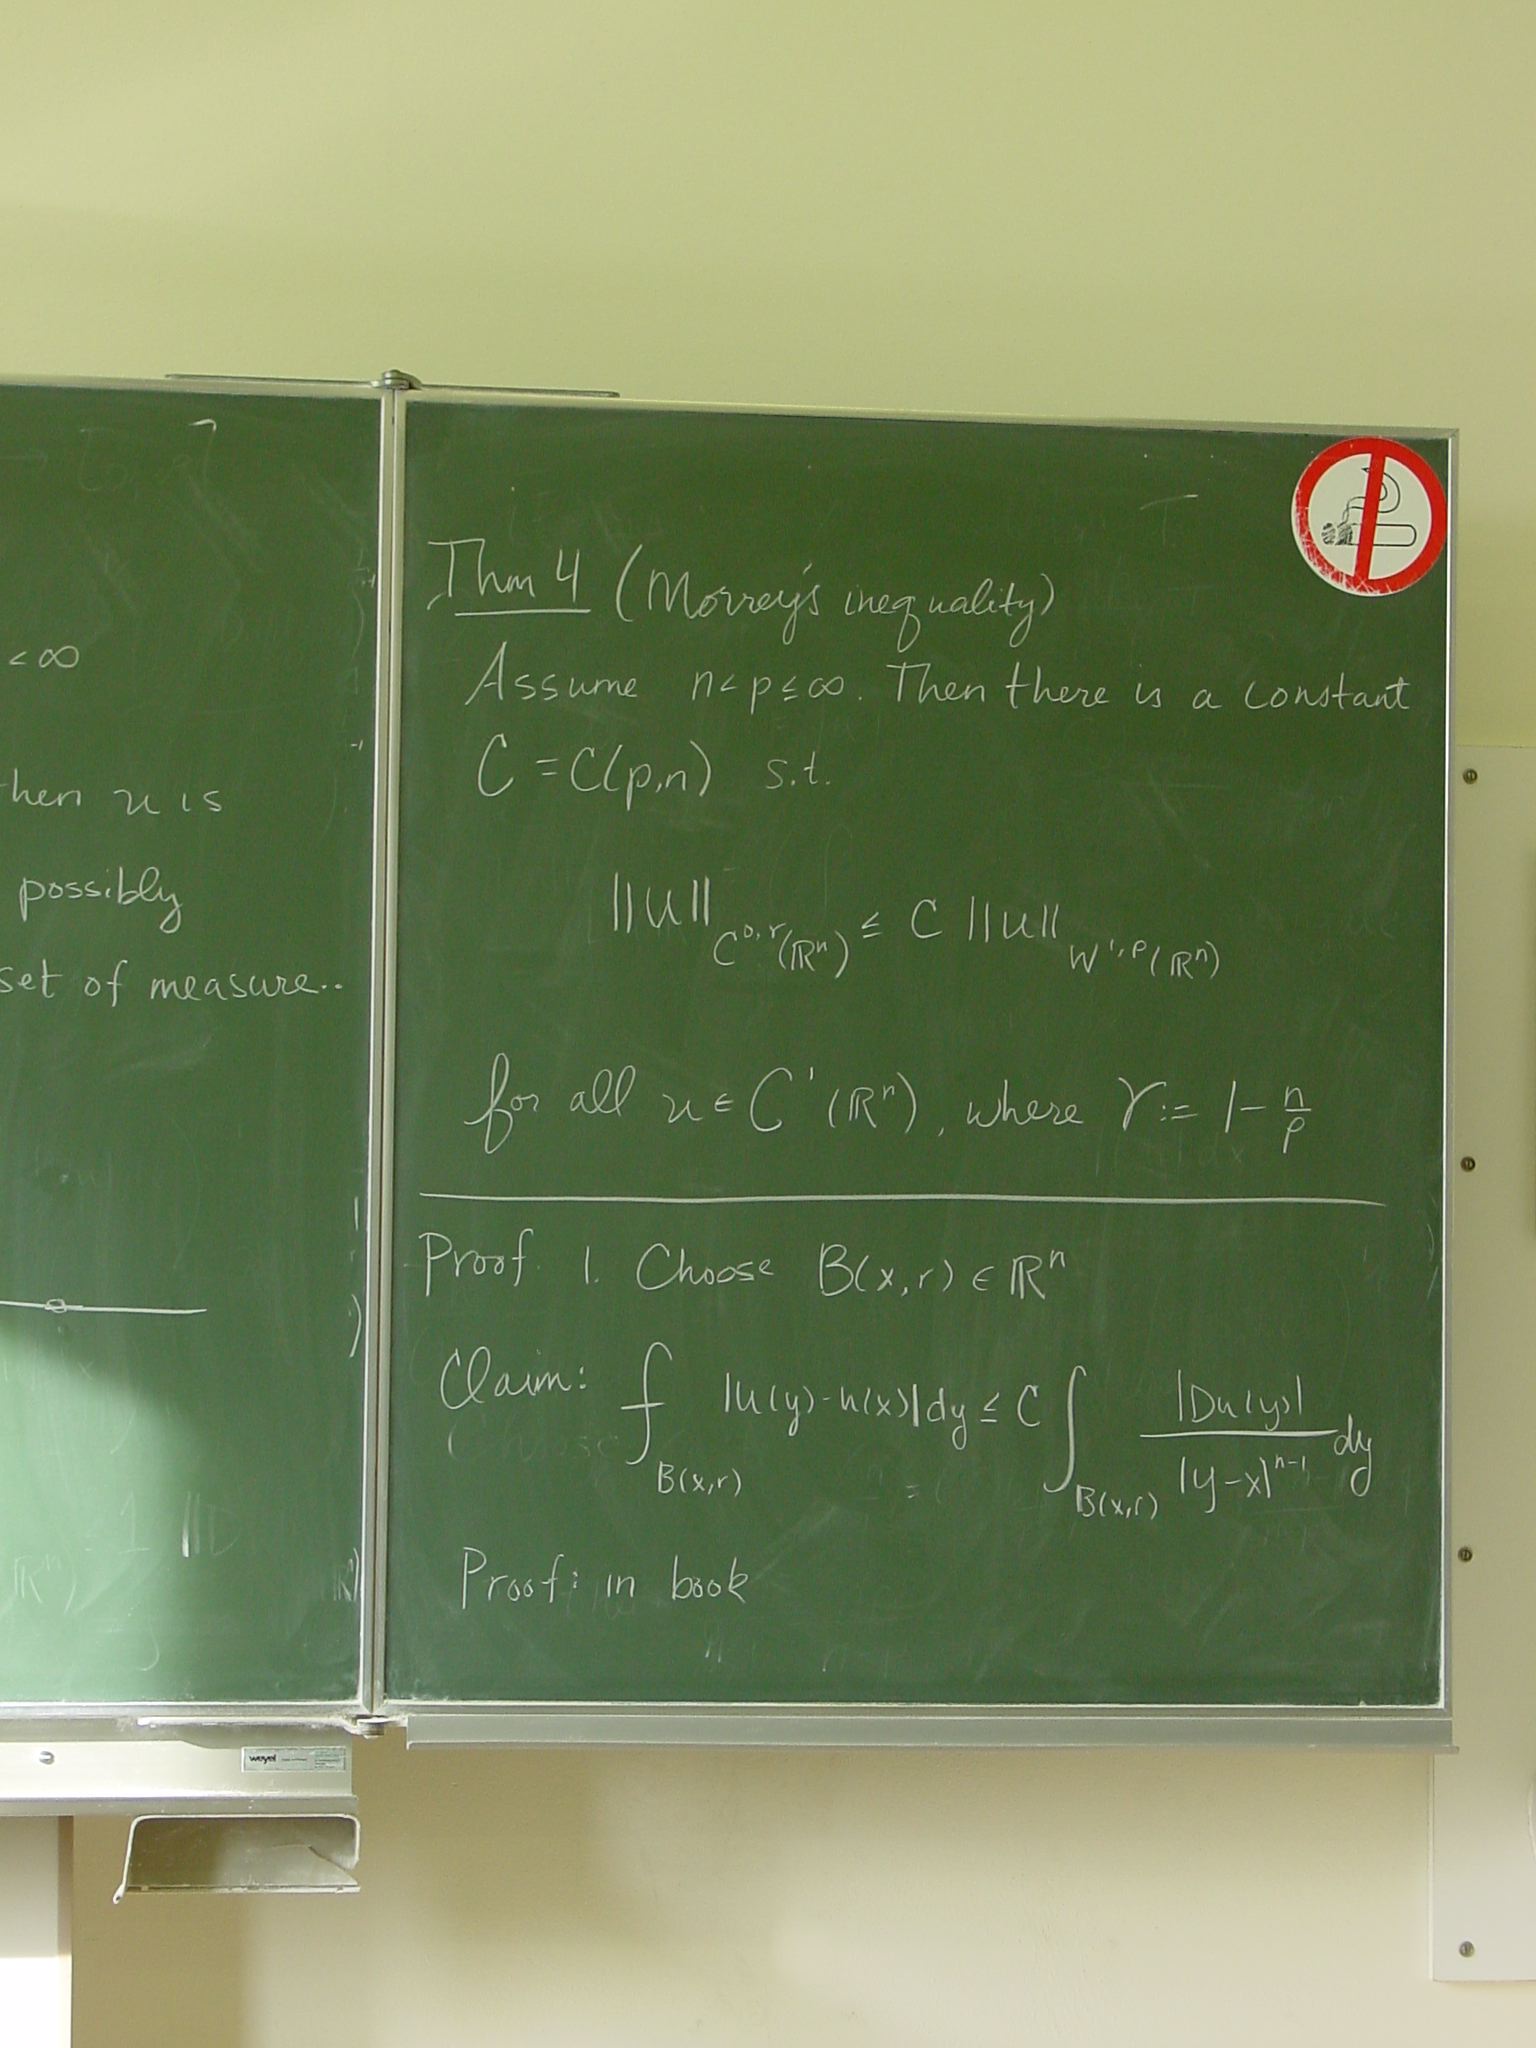 < ∞
then u is
possibly
set of measure..
Thm 4 (Morrey's inequality)
Assume n < p ≤ ∞. Then there is a constant
C = C(p,n) s.t.
||u||_{C^{0,γ}(ℝ^n)} ≤ C ||u||_{W^{1,p}(ℝ^n)}
for all u ∈ C^1(ℝ^n), where γ := 1 - n/p
Proof. 1. Choose B(x,r) ∈ ℝ^n
Claim: ⨍_{B(x,r)} |u(y)-u(x)| dy ≤ C ∫_{B(x,r)} |Du(y)| / |y-x|^{n-1} dy
Proof: in book
weyel